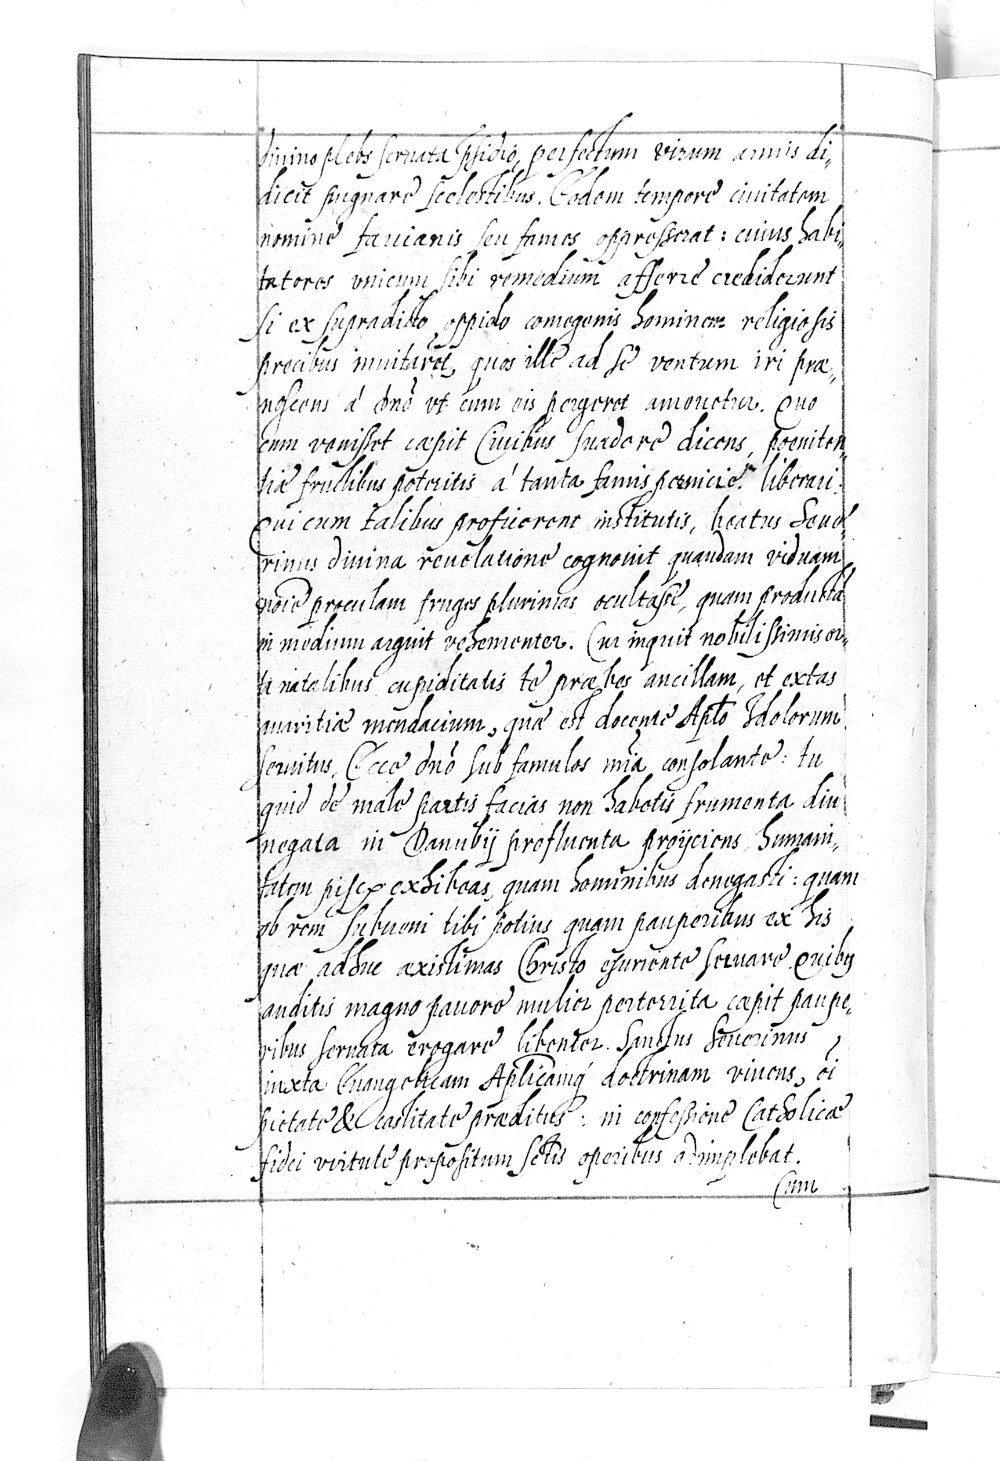 diuino plebs seruata psidio, perfectum virum armis di„
dicit pugnare scelestibus. Eodem tempore ciuitatem
nomine fauianis seu fames oppresserat: cuius habi„
tatores vnicum sibi remedium afferre crediderunt
si ex supradicto oppido comegenis hominem religiosis
precibus inuitaret, quos ille ad se ventum iri præ„
noscens á dnō vt cum eis pergeret amouetur. Quo
cum venisset cæpit Ciuibus suadere dicens, poeniten„
tiæ fructibus poteritis á tanta famis pernicie liberari.
Qui cum talibus proficerent institutis, beatus Seue„
rinus diuina reuelatione cognouit quandam viduam
nōie proculam fruges plurimas ocultasse, quam producta
in medium arguit vehementer. Cur inquit nobilissimis or„
ta natalibus cupiditatis te præbes ancillam, et extas
auaritiæ mendacium, quæ est docente Aplo Idolorum
seruitus. Ecce dnō sub famulos mīa consolante: tu
quid de male partis facias non habetis frumenta diu
negata in Danubij profluenta proijciens humani„
tatem pisc exhibeas, quam hominibus denegasti: quam
ob rem subueni tibi potius quam pauperibus ex his
quæ adhuc æxistimas Christo esuriente seruare Quibus
auditis magno pauore mulier perterrita cæpit paupe„
ribus seruata erogare libenter. Sanctus Seuerinus
iuxta Euangelicam Aplicamq́ doctrinam viuens, oī
pietate & castitate præditus: in confessione Catholicæ
fidei virtute propositum sctis operibus adimplebat.
Cum